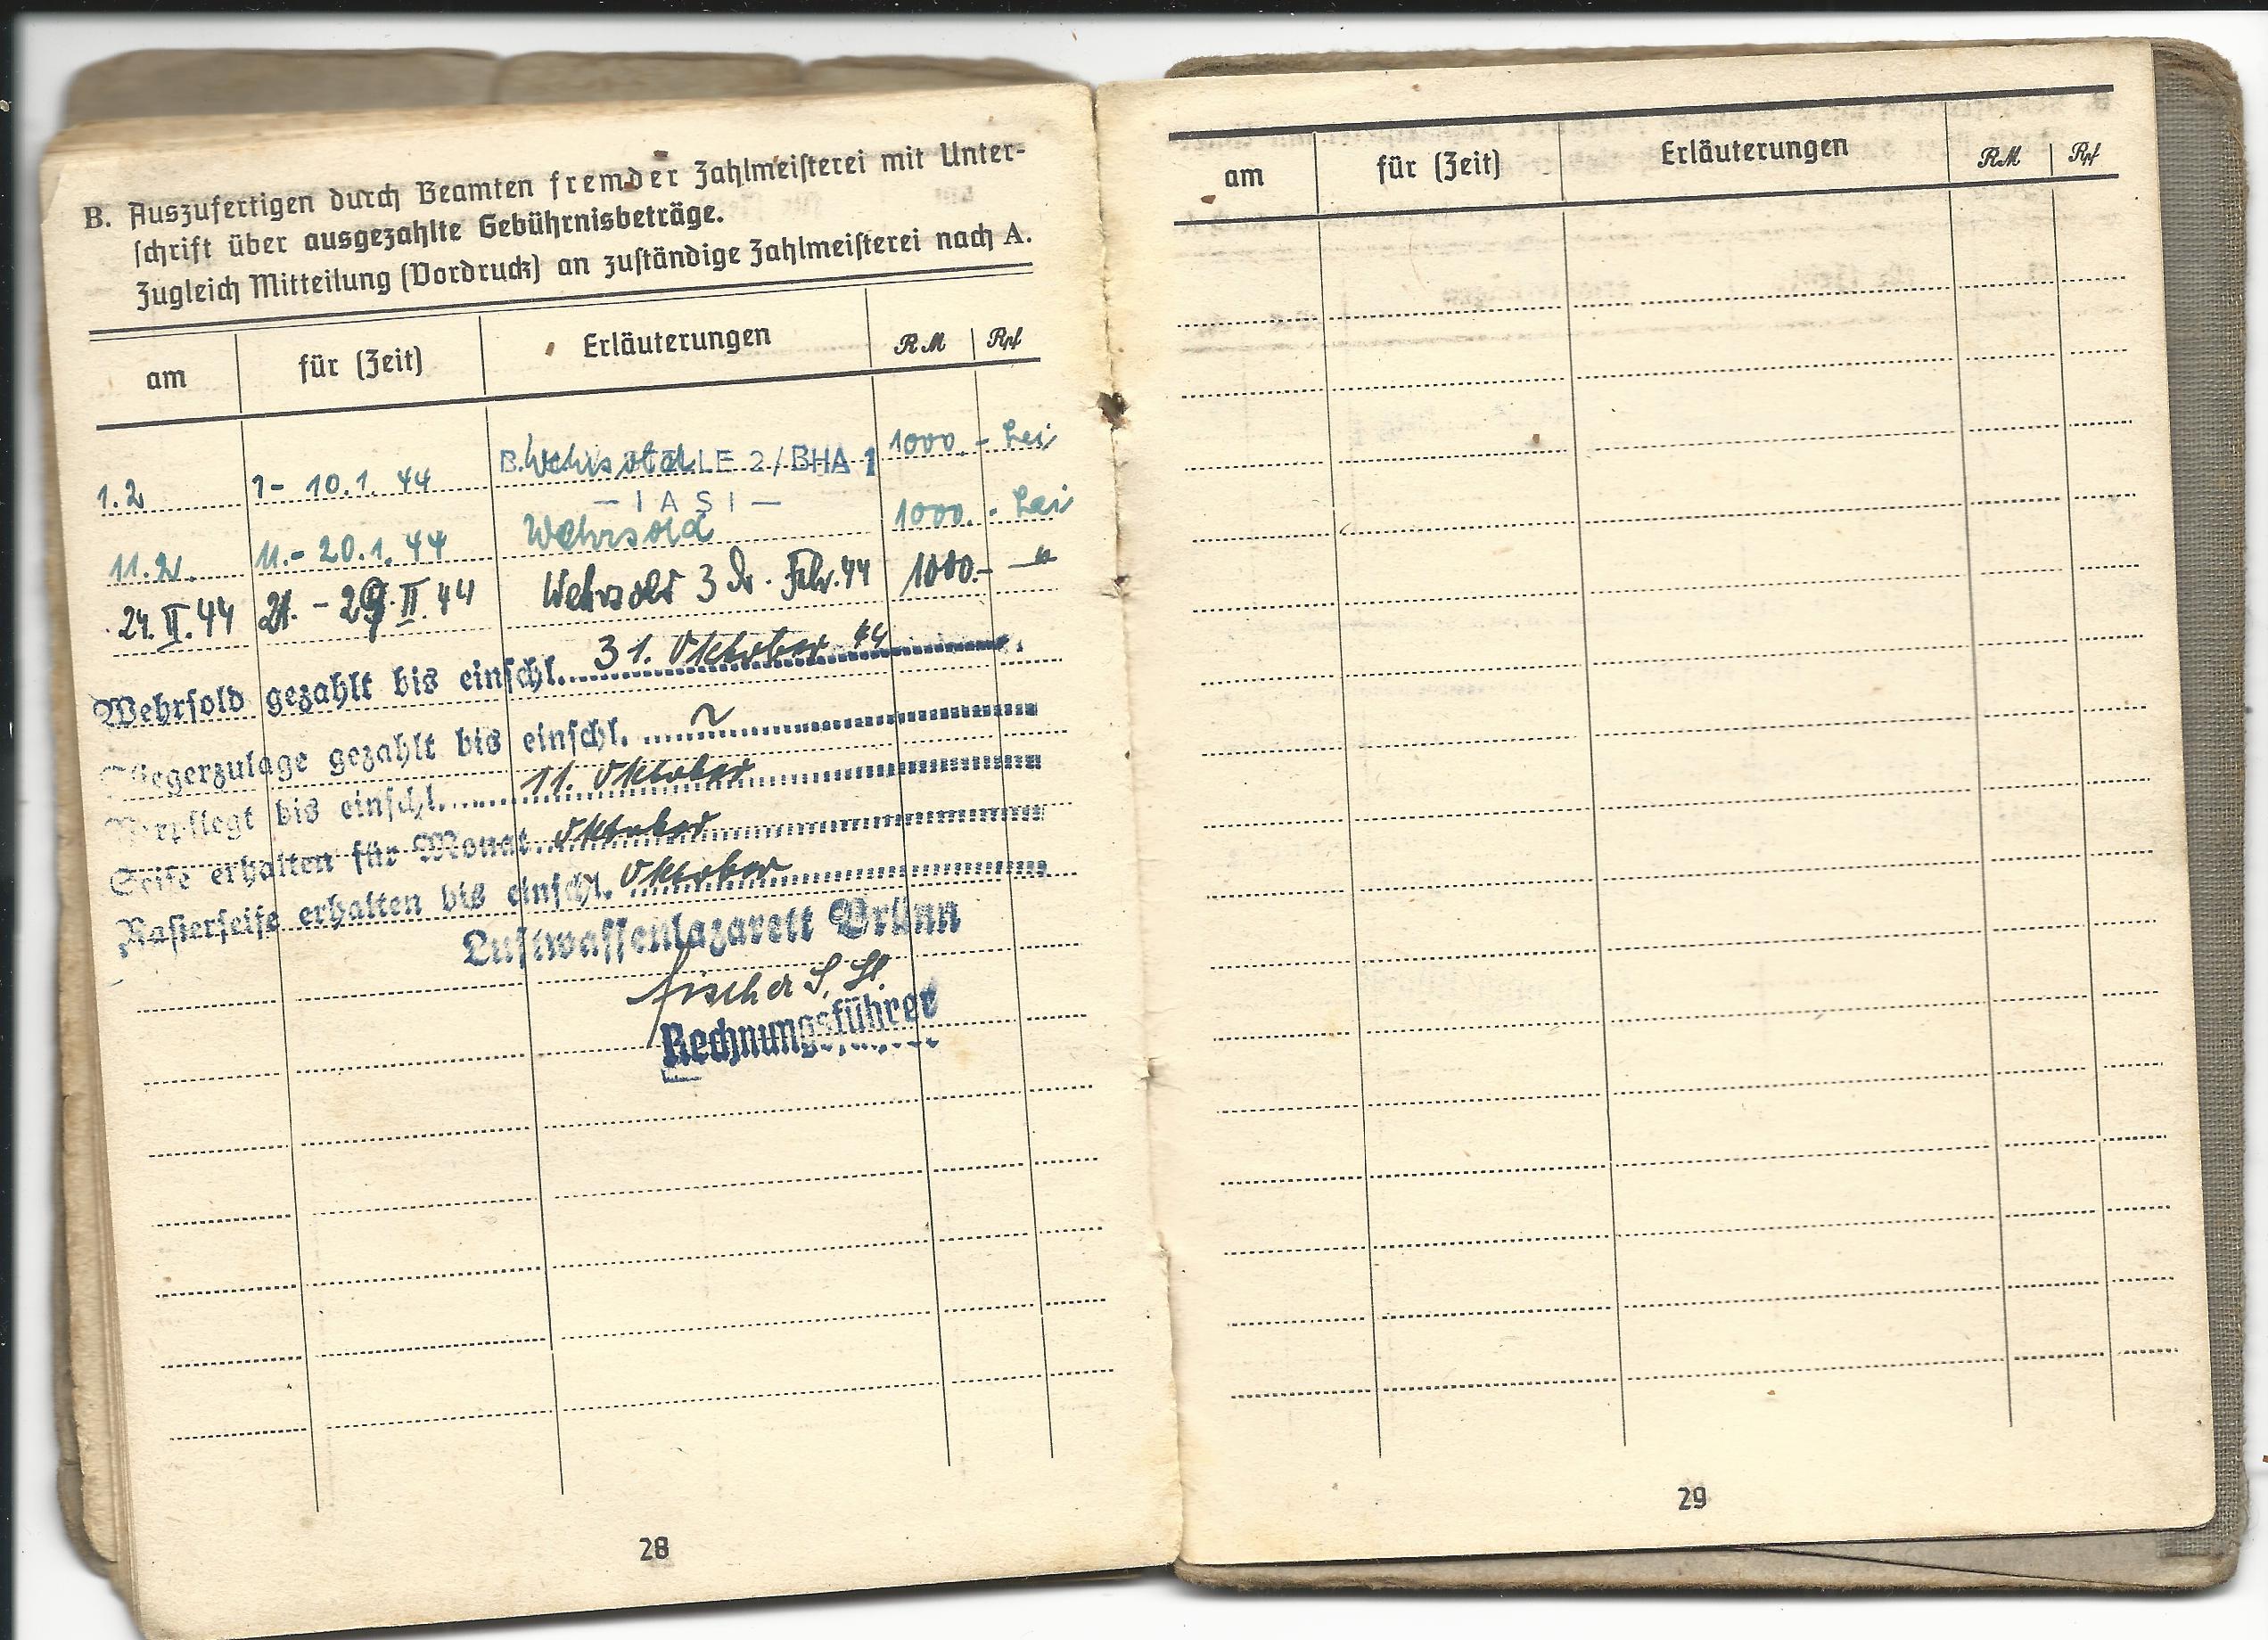 B. Auszufertigen durch Beamten fremder Zahlmeisterei mit Unter-
schrift über ausgezahlte Gebührnisbeträge.
Zugleich Mitteilung (Vordruck) an zuständige Zahlmeisterei nach A.
am für (Zeit) Erläuterungen RM Rpf
1.2 1- 10.1.44 Wehrsold 1000.- Lei
LE 2/BHA 1
— IAŞI —
11.2. 11.- 20.1.44 Wehrsold 1000.- Lei
24.II.44 21. - 29.II.44 Wehrsold 3 Febr.44 1000.- "
Wehrsold gezahlt bis einschl. 31. Oktober 44
Fliegerzulage gezahlt bis einschl. ~
Verpflegt bis einschl. 11. Oktober
Seife erhalten für Monat Oktober
Rasierseife erhalten bis einschl. Oktober
Luftwaffenlazarett Brünn
Fischer
Rechnungsführer
28
am für (Zeit) Erläuterungen RM Rpf
29